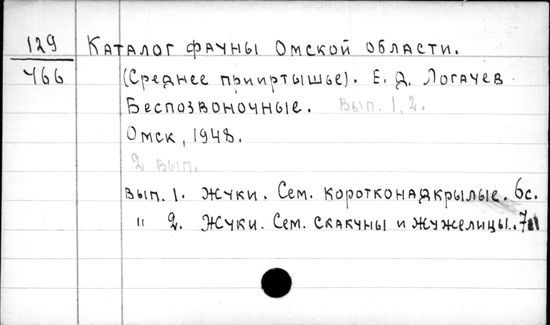 129 Каталог фауны Омской области.
466 (Среднее прииртышье). Е. Д. Логачев
Беспозвоночные. Вып. 1, 2.
Омск, 1948.
2 вып.
Вып. 1. Жуки. Сем. коротконадкрылые. 6с.
" 2. Жуки. Сем. скакуны и жужелицы. 7